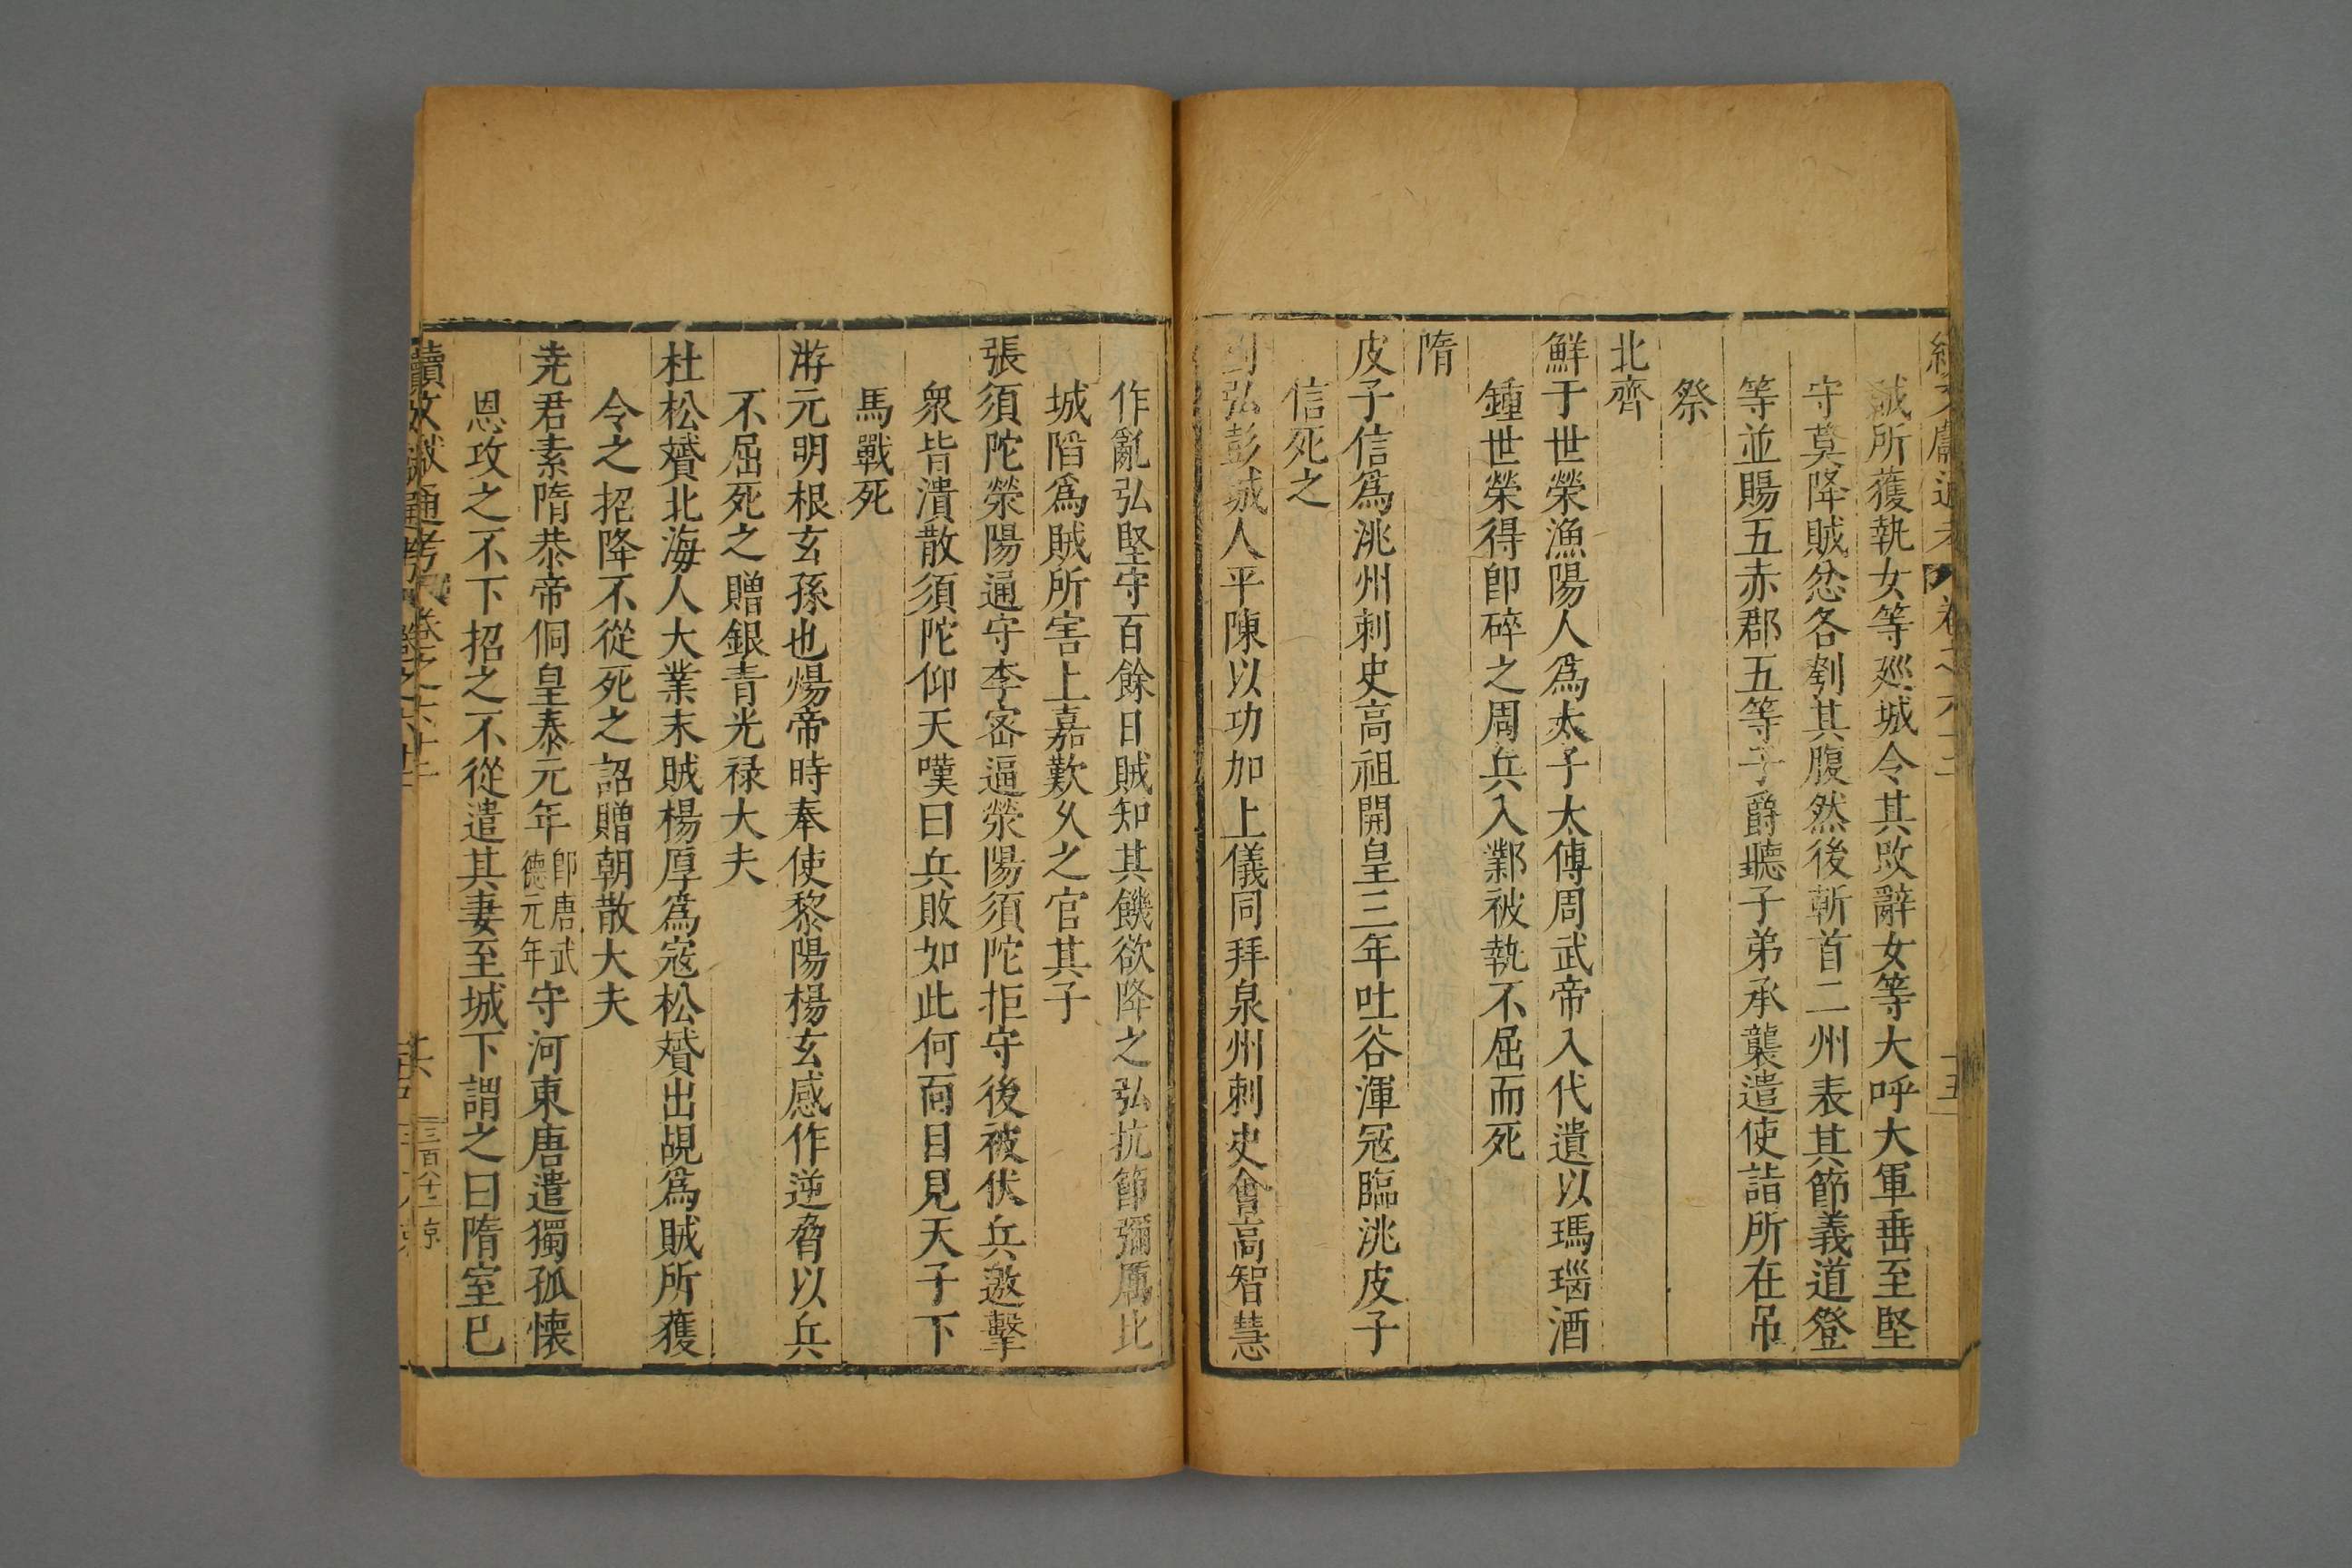 賊所獲執女等廵城令其改辭女等大呼大軍垂至堅
守莫降賊忿各刳其腹然後斬首二州表其節義道登
等並賜五赤郡五等子爵聽子弟承襲遣使詣所在吊
祭
北齊
鮮于世榮漁陽人爲太子太傅周武帝入代遺以瑪瑙酒
鍾世榮得卽碎之周兵入鄴被執不屈而死
隋
皮子信爲洮州刺史高祖開皇三年吐谷渾冦臨洮皮子
信死之
劉弘彭城人平陳以功加上儀同拜泉州刺史會高智慧
作亂弘堅守百餘日賊知其饑欲降之弘抗節彌厲比
城䧟爲賊所害上嘉歎乆之官其子
張須陀滎陽通守李密逼滎陽須陀拒守後被伏兵邀擊
衆皆潰散須陀仰天嘆曰兵敗如此何面目見天子下
馬戰死
游元明根玄孫也煬帝時奉使黎陽楊玄感作逆脅以兵
不屈死之贈銀青光禄大夫
杜松贇北海人大業末賊楊厚爲寇松贇出覘爲賊所獲
令之招降不從死之詔贈朝散大夫
尭君素隋恭帝侗皇泰元年卽唐武德元年守河東唐遣獨孤懐
恩攻之不下招之不從遣其妻至城下謂之曰隋室已
續文獻通考 卷之六十二 三百八十二 京